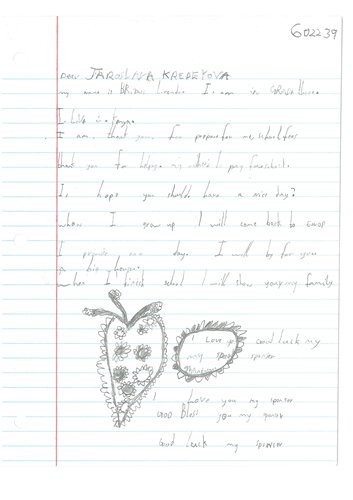 602239
Dear JAROSLAVA KREDEYOVA
my name is BRIAN I am in GRADE three.
I Live in Kenya.
I am thank you for prepare for me school fees
thank you for helping my mother pay
I hope you should have a nice day?
when I grow up I will come back to
I promise one day I will by for you
a big
when I finish school I will show you my family
I Love you Good luck my
my sponser sponser
I Love you my sponser
GOD Bless you my sponser
Good Luck my sponser